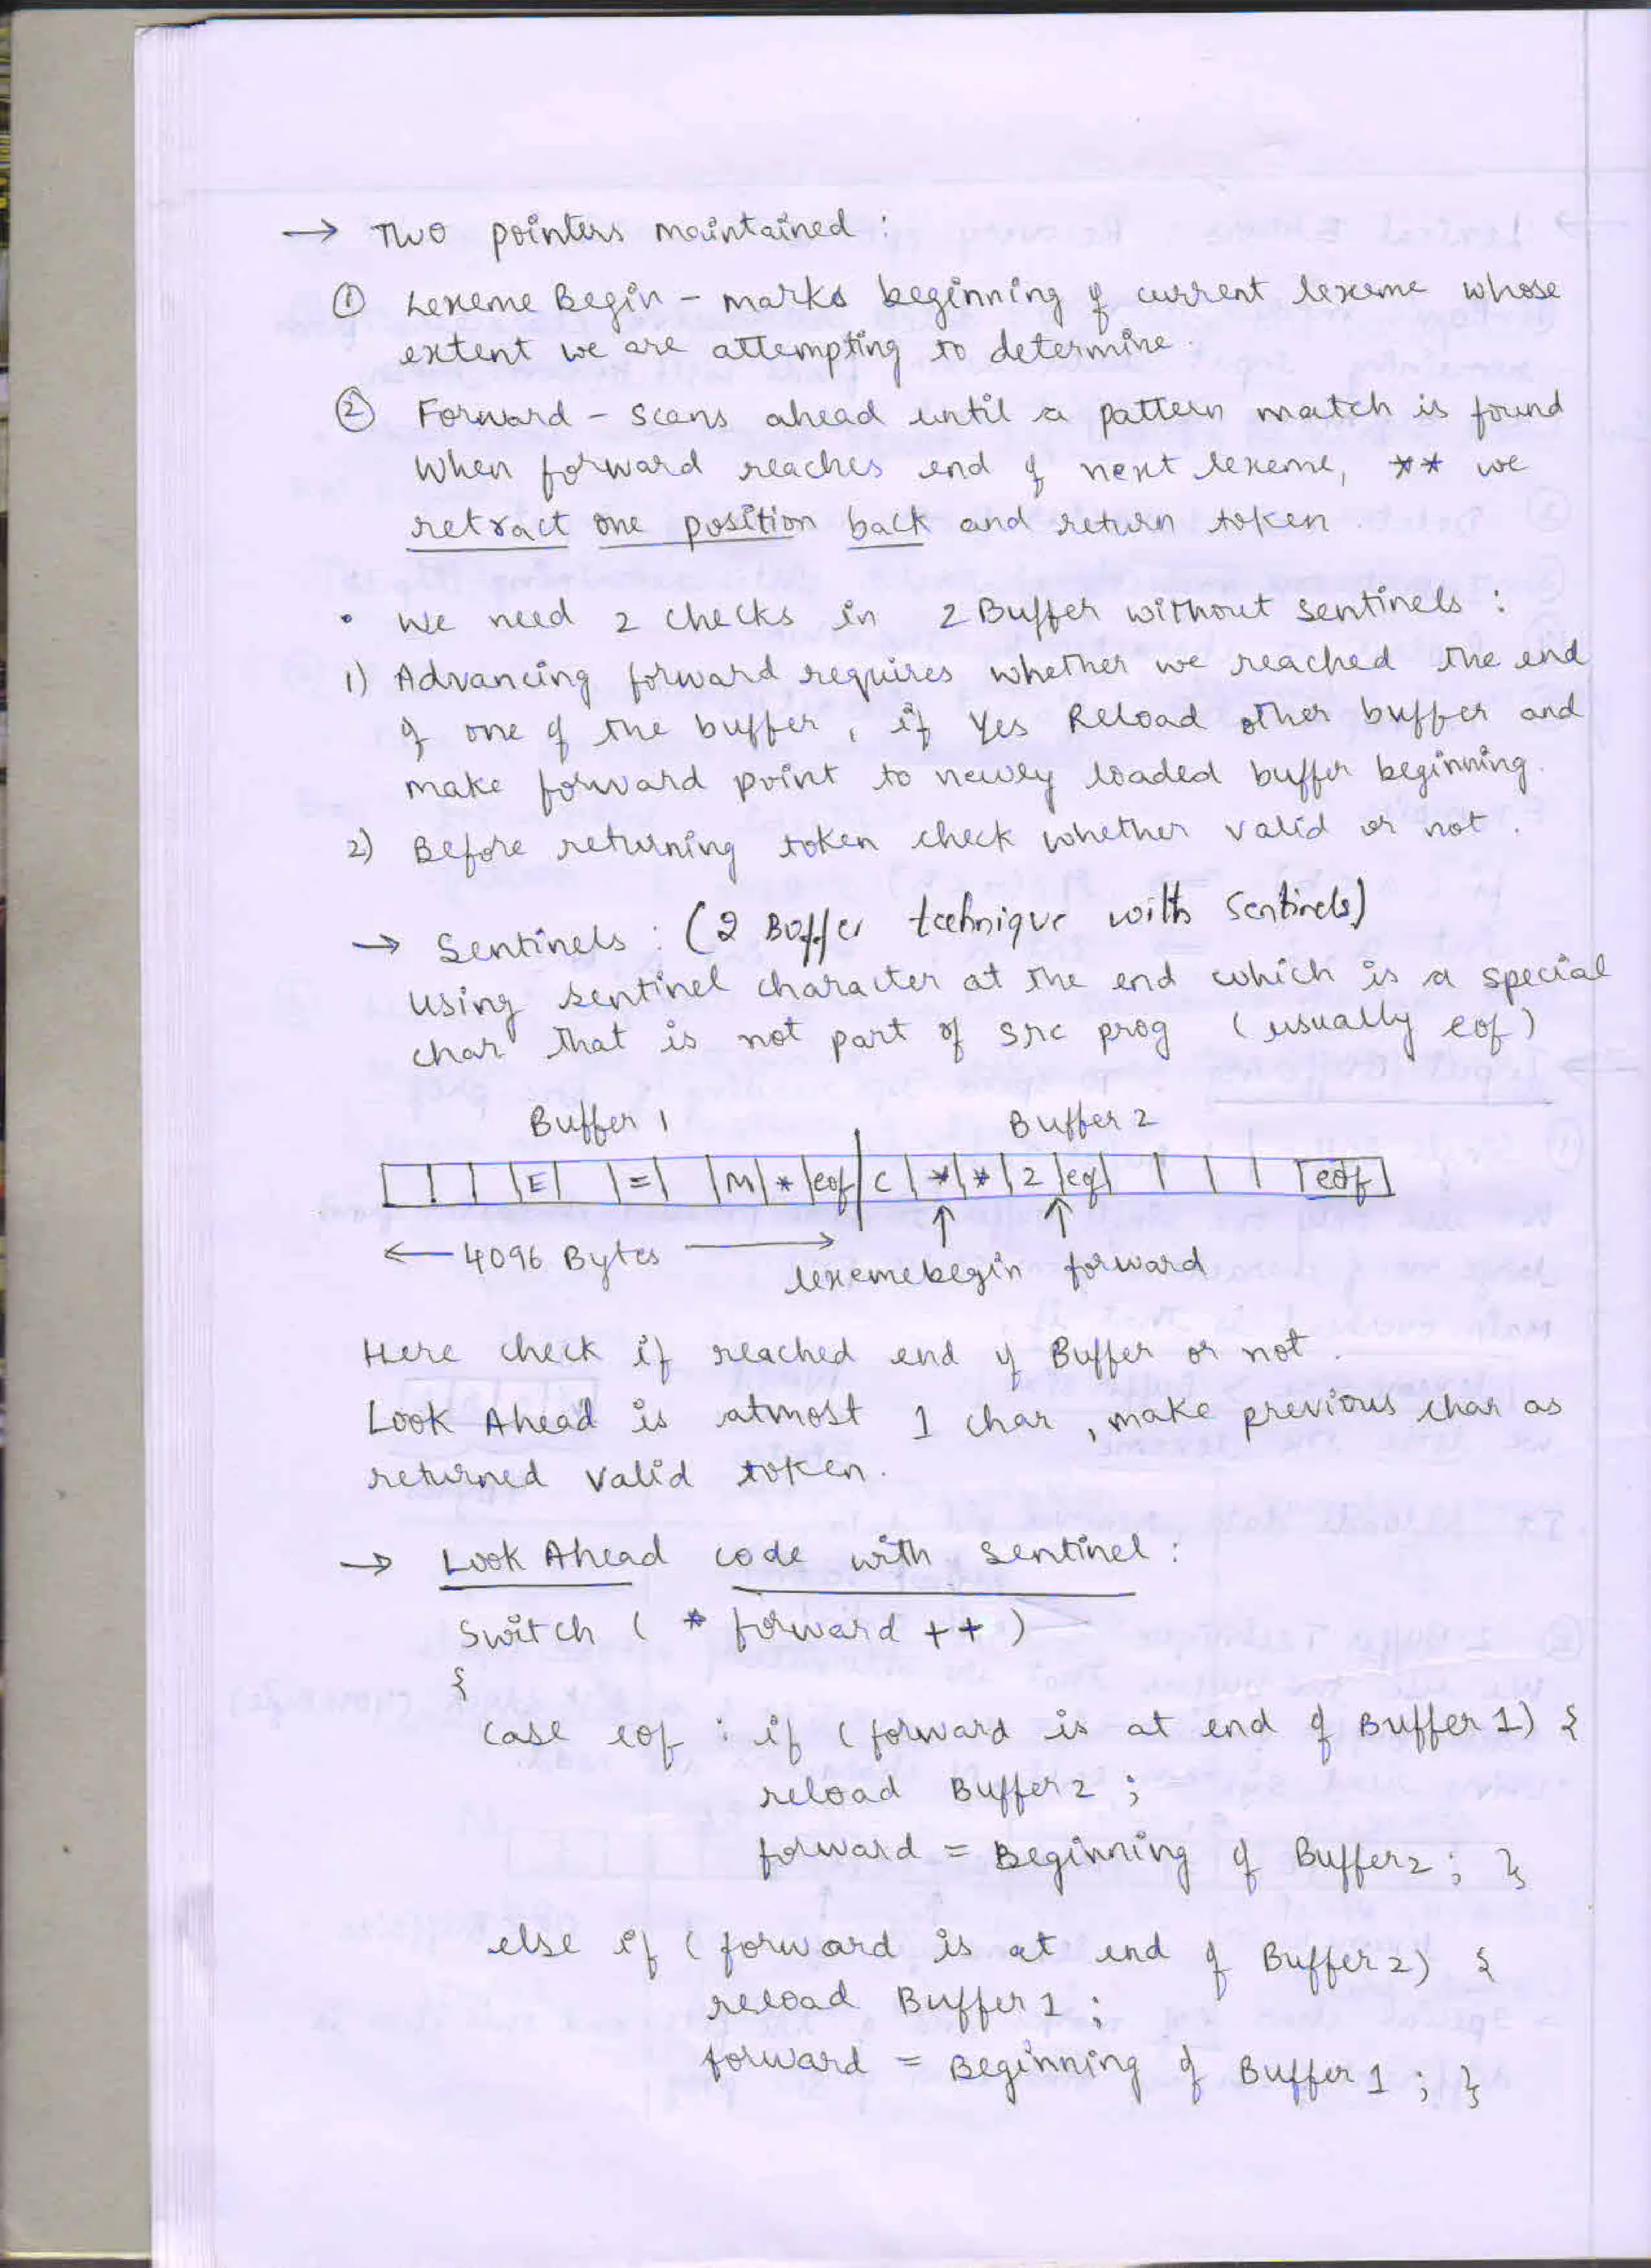 → Two pointers maintained :
① Lexeme Begin - marks beginning of current lexeme whose
extent we are attempting to determine.
② Forward - scans ahead until a pattern match is found
When forward reaches end of next lexeme, ** we
retract one position back and return token
• We need 2 checks in 2 Buffer without sentinels :
1) Advancing forward requires whether we reached the end
of one of the buffer, if Yes Reload other buffer and
make forward point to newly loaded buffer beginning.
2) Before returning token check whether valid or not.
→ Sentinels : (2 Buffer technique with Sentinels)
using sentinel character at the end which is a special
char that is not part of src prog (usually eof)
Buffer 1 Buffer 2
E = M * eof C * * 2 eof eof
← 4096 Bytes →
lexemebegin forward
Here check if reached end of Buffer or not.
Look Ahead is atmost 1 char, make previous char as
returned valid token.
→ Look Ahead code with sentinel :
Switch ( * forward ++ )
{
case eof : if (forward is at end of Buffer 1) {
reload Buffer 2 ;
forward = Beginning of Buffer 2 ; }
else if (forward is at end of Buffer 2) {
reload Buffer 1 ;
forward = Beginning of Buffer 1 ; }